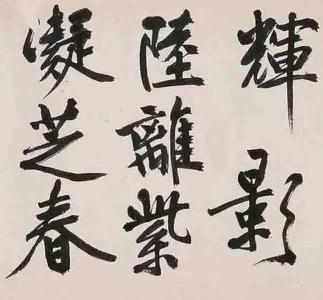 輝影
陸離紫
凝芝春